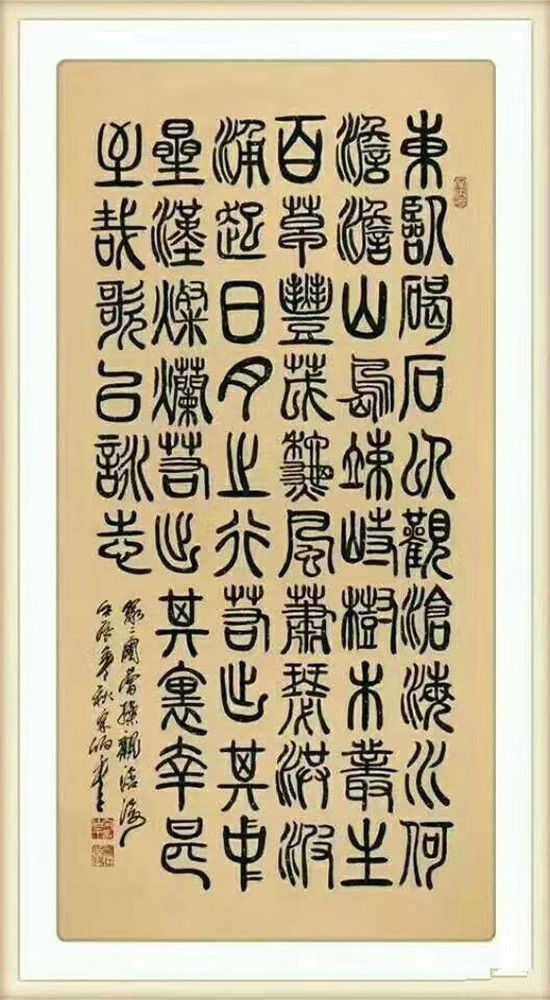 東臨碣石以觀滄海水何
澹澹山島竦峙樹木叢生
百草豐茂秋風蕭瑟洪波
涌起日月之行若出其中
星漢燦爛若出其裏幸甚
至哉歌以詠志
三國曹操觀滄海
壬辰年秋